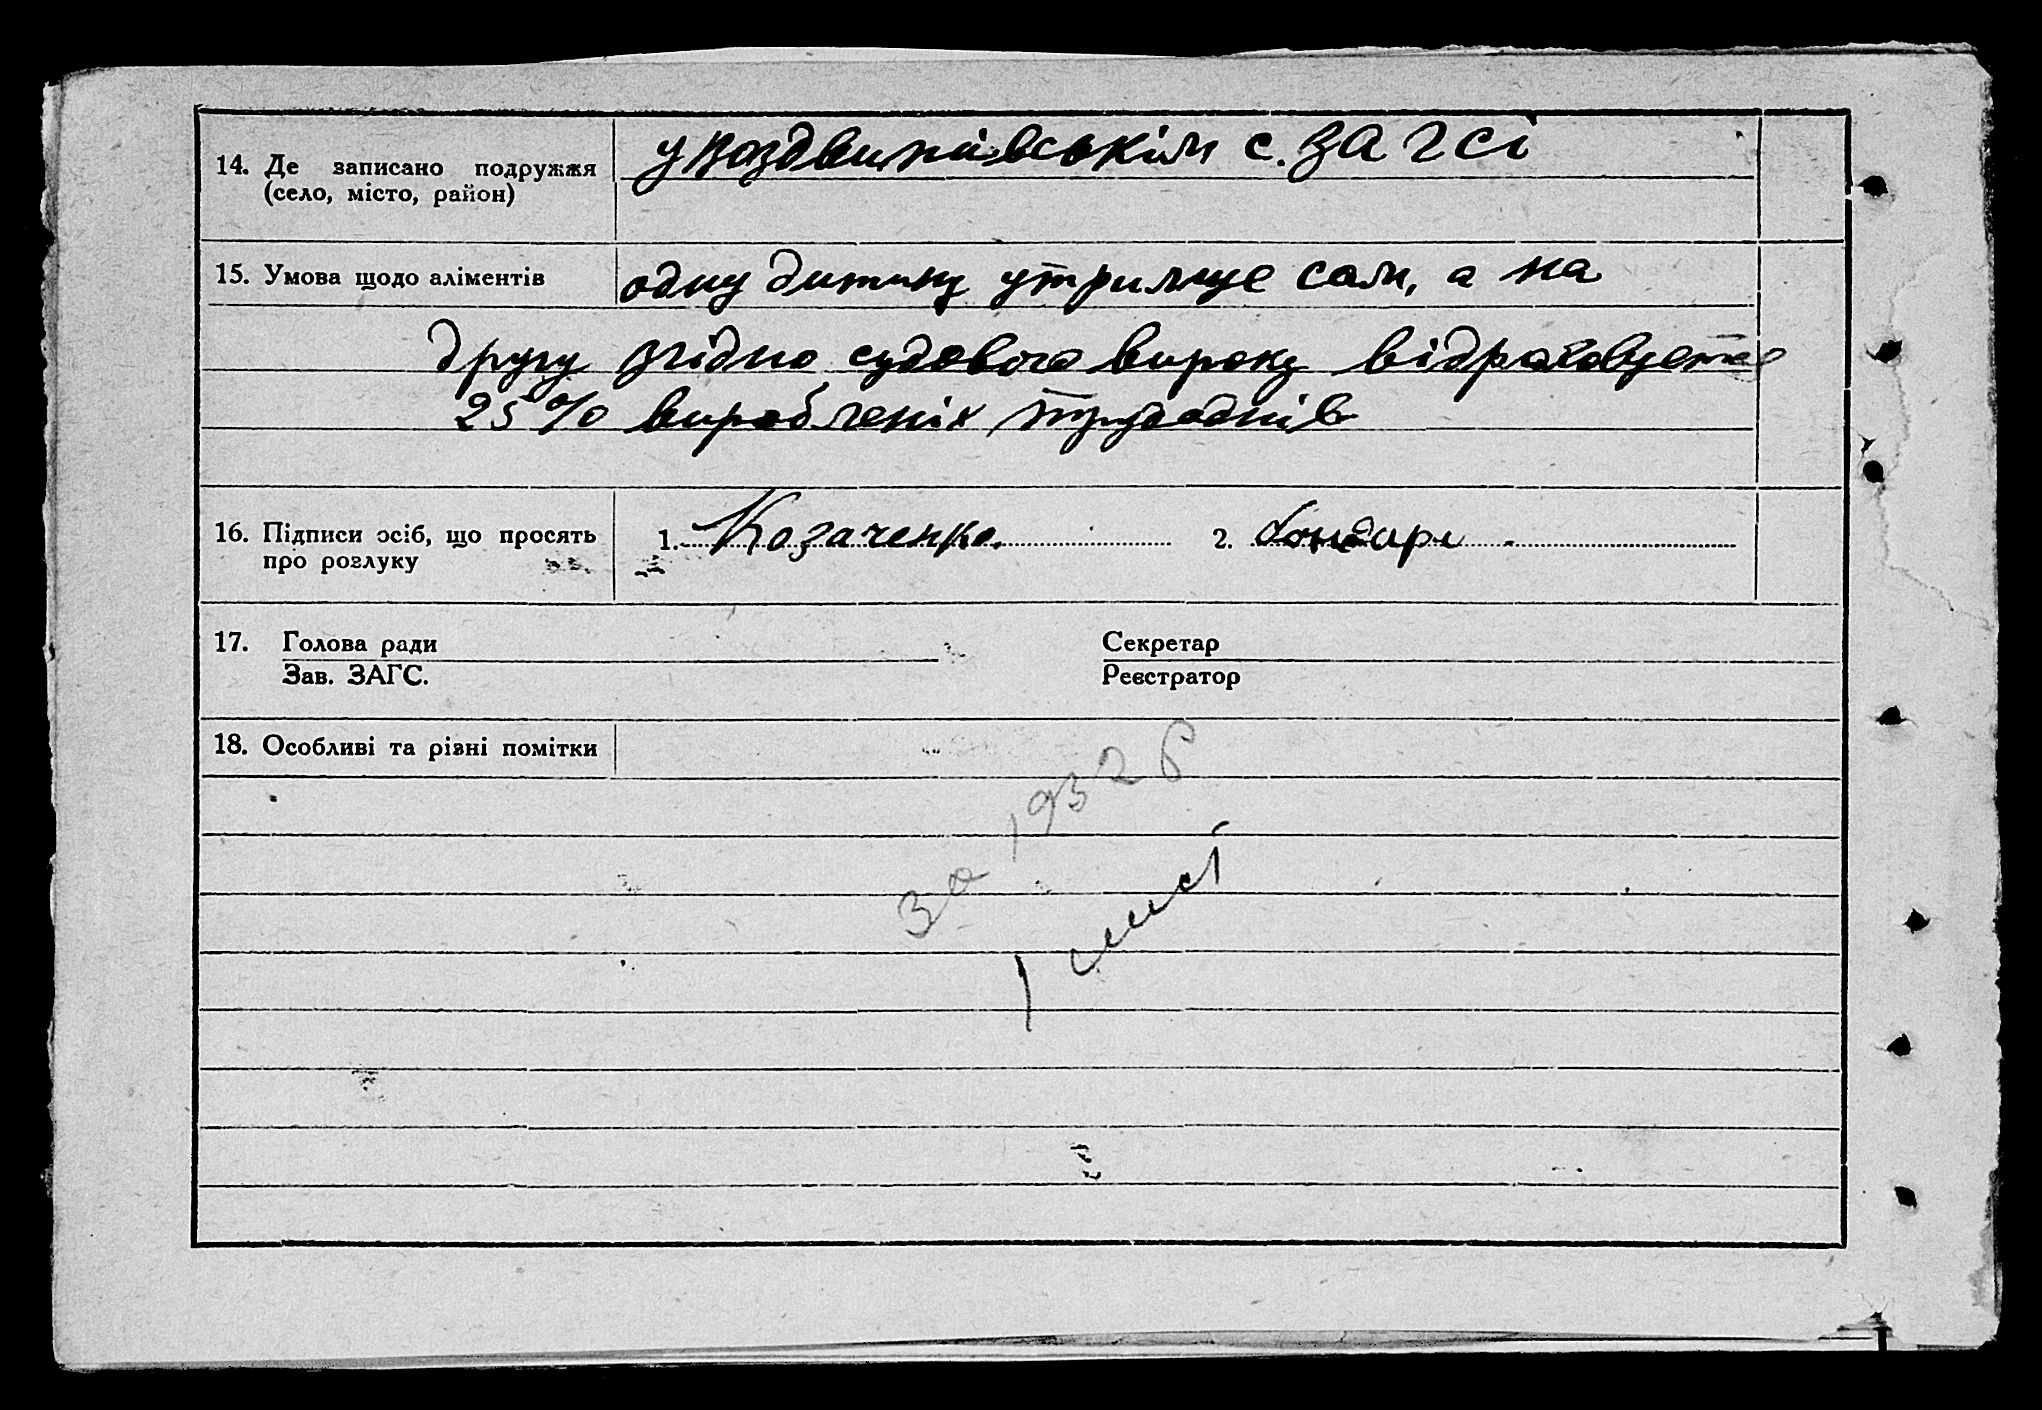 14. Де записано подружжя
(село, місто, район)
у Воздвижівським с. ЗАГСі
15. Умова щодо аліментів
одну дитину утримує сам, а на
другу згідно судового вироку відраховується
25% вироблених трудоднів
16. Підписи осіб, що просять
про розлуку
1. Козаченко. 2. Бондарь
17. Голова ради Секретар
Зав. ЗАГС. Реєстратор
18. Особливі та різні помітки
за 1932 р
1 лист